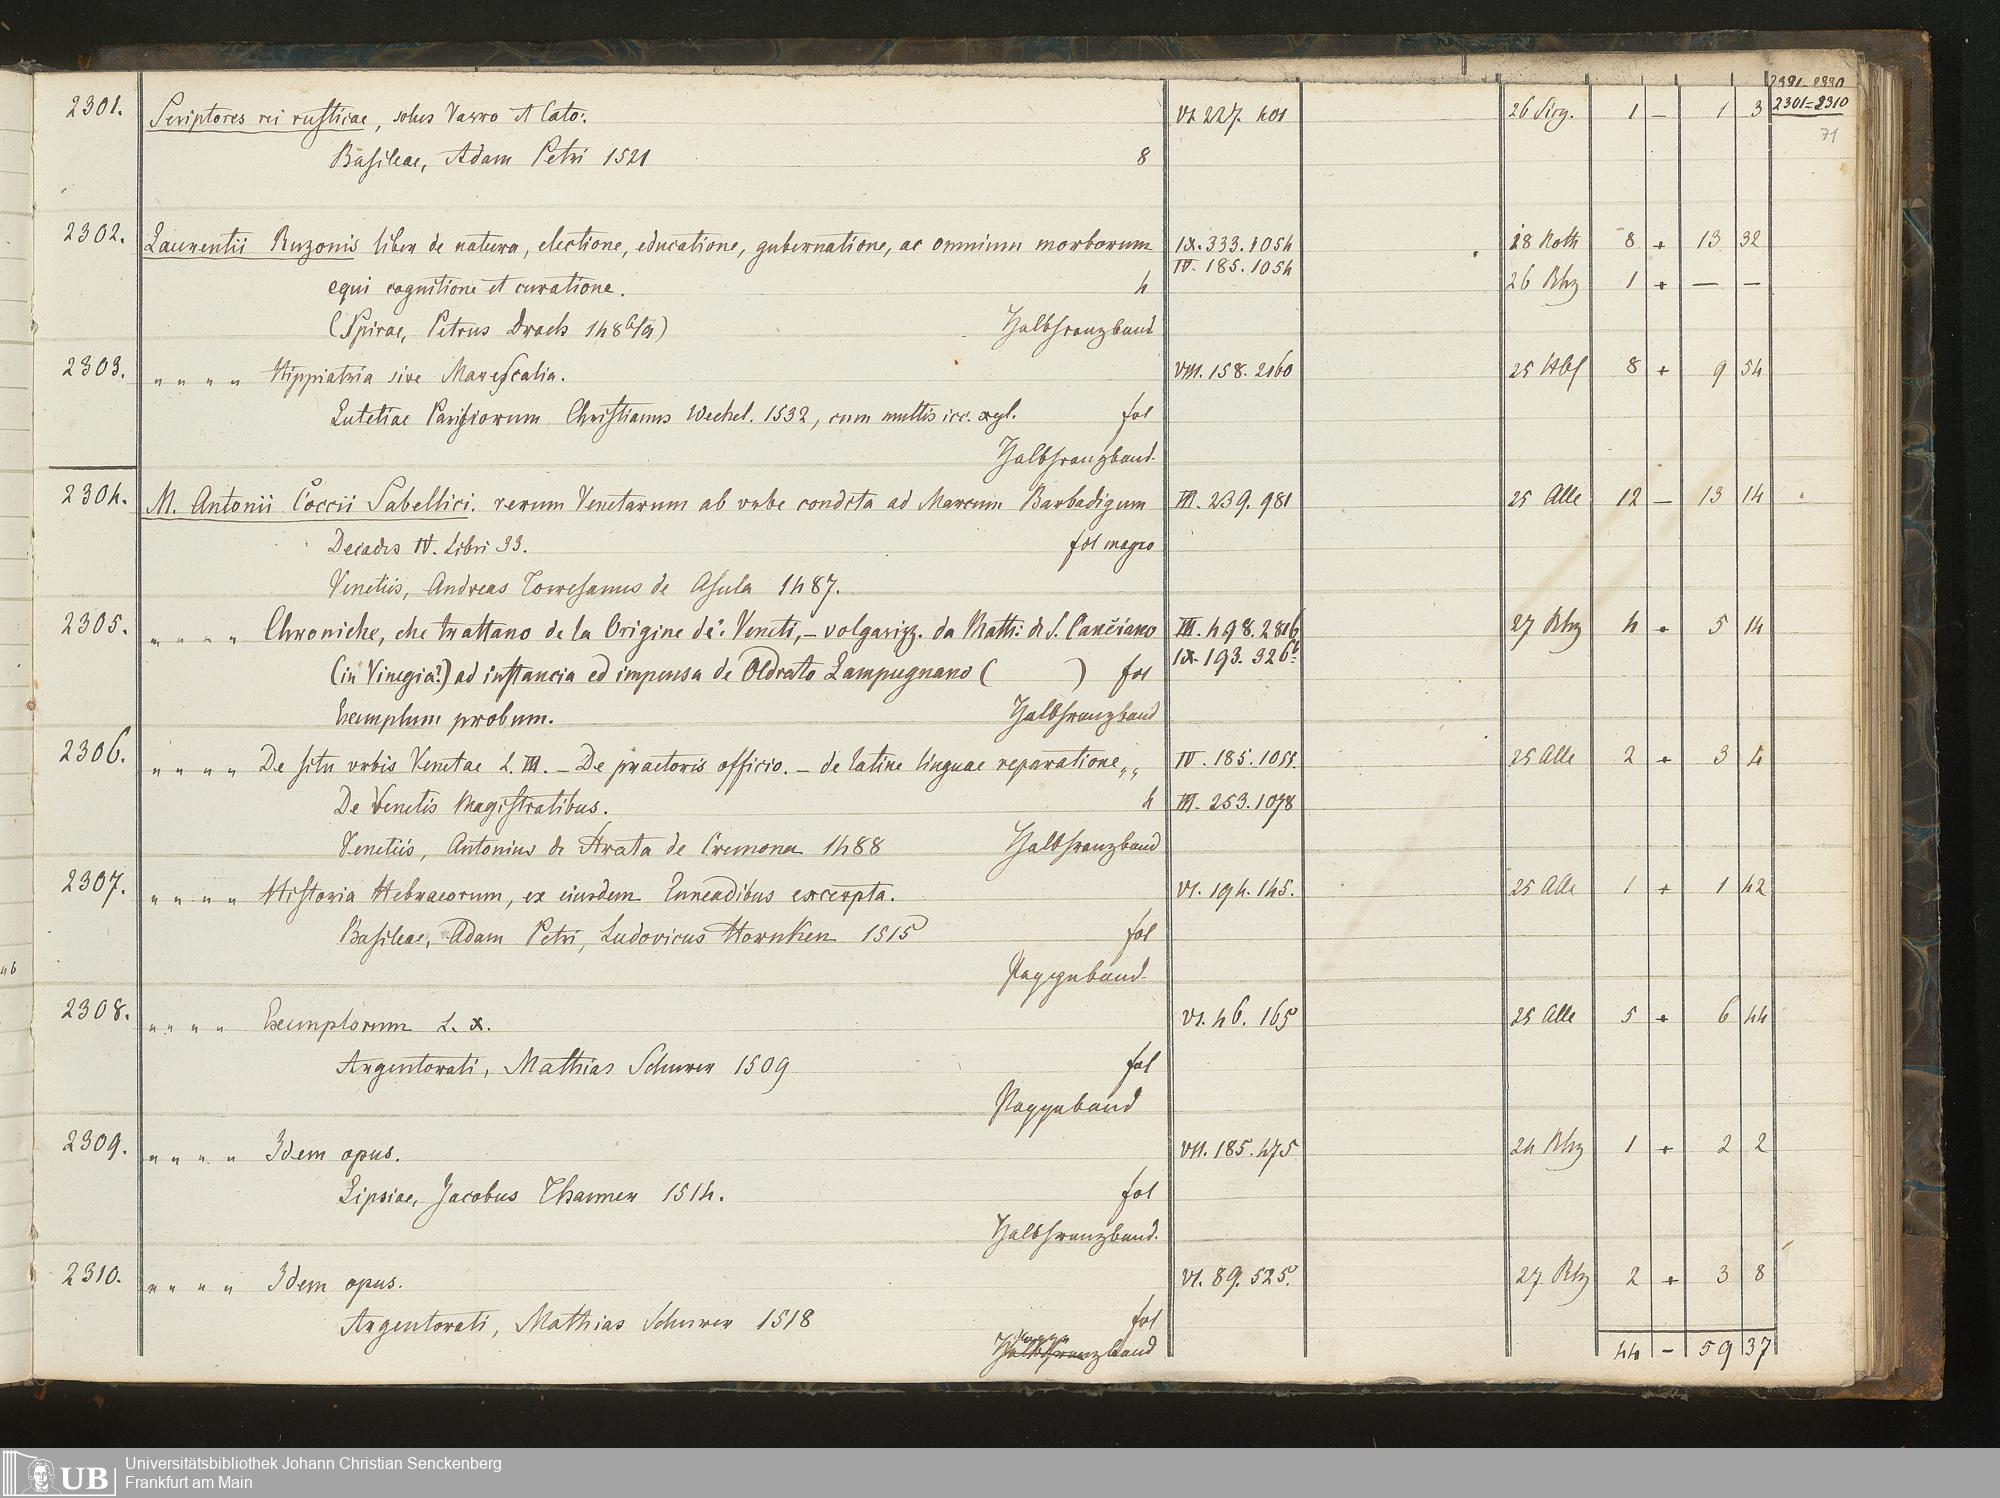 2391-2330
2301=2310
71
2301. Scriptores rei rusticae, solus Varro et Cato:. VI. 227. 401 26 Sirg. 1 — 1 3
Basileae, Adam Petri 1521 8
2302. Laurentii Ruzonis liber de natura, electione, educatione, gubernatione, ac omnium morborum IX. 333. 1054 28 Roth 8 + 13 32
IV. 185. 1054
equi cognitione et curatione. 4 26 Rhz 1 + — —
(Spirae, Petrus Drach 1486/9) Halbfranzband
2303. " " " " Hippiatria sive Marescalia. VIII. 158. 2160 25 Hbf 8 + 9 54
Lutetiae Parisiorum Christianus Wechel. 1532, cum multis icc. xyl. fol
Halbfranzband.
2304. M. Antonii Coccii Sabellici. rerum Venetarum ab urbe condita ad Marcum Barbadigum III. 239. 981 25 Alle 12 — 13 14
Decades IV. Libri 33. fol magno
Venetiis, Andreas Torresanus de Asula 1487.
2305. " " " " Chroniche, che trattano de la Origine de'. Veneti, — volgarizz. da Math: di S. Canciano III. 498. 2816 27 Rhz 4 + 5 14
IX. 193. 326b
(in Vinegia?) ad instancia ed impensa de Oldrato Lampugnano ( ) fol
Exemplum probum. Halbfranzband
2306. " " " " De situ urbis Venetae L. III. — De praetoris officio. — de latine linguae reparatione,, IV. 185. 1055. 25 Alle 2 + 3 4
De Venetis Magistratibus. 4 III. 253. 1078
Venetiis, Antonius de Strata de Cremona 1488 Halbfranzband
2307. " " " " Historia Hebraeorum, ex eiusdem Enneadibus excerpta. VI. 194. 145. 25 Alle 1 + 1 42
Basileae, Adam Petri, Ludovicus Hornken 1515 fol
Pappband.
2308. " " " " Exemplorum L. X. VI. 46. 165 25 Alle 5 + 6 44
Argentorati, Mathias Schurer 1509 fol
Pappband
2309. " " " " Idem opus. VII. 185. 475 24 Rhz 1 + 2 2
Lipsiae, Jacobus Thanner 1514. fol
Halbfranzband.
2310. " " " " Idem opus. VI. 89. 525. 27 Rhz 2 + 3 8
Argentorati, Mathias Schurer 1518 fol
Halbfranzband 44 — 59 37
UB
Universitätsbibliothek Johann Christian Senckenberg
Frankfurt am Main